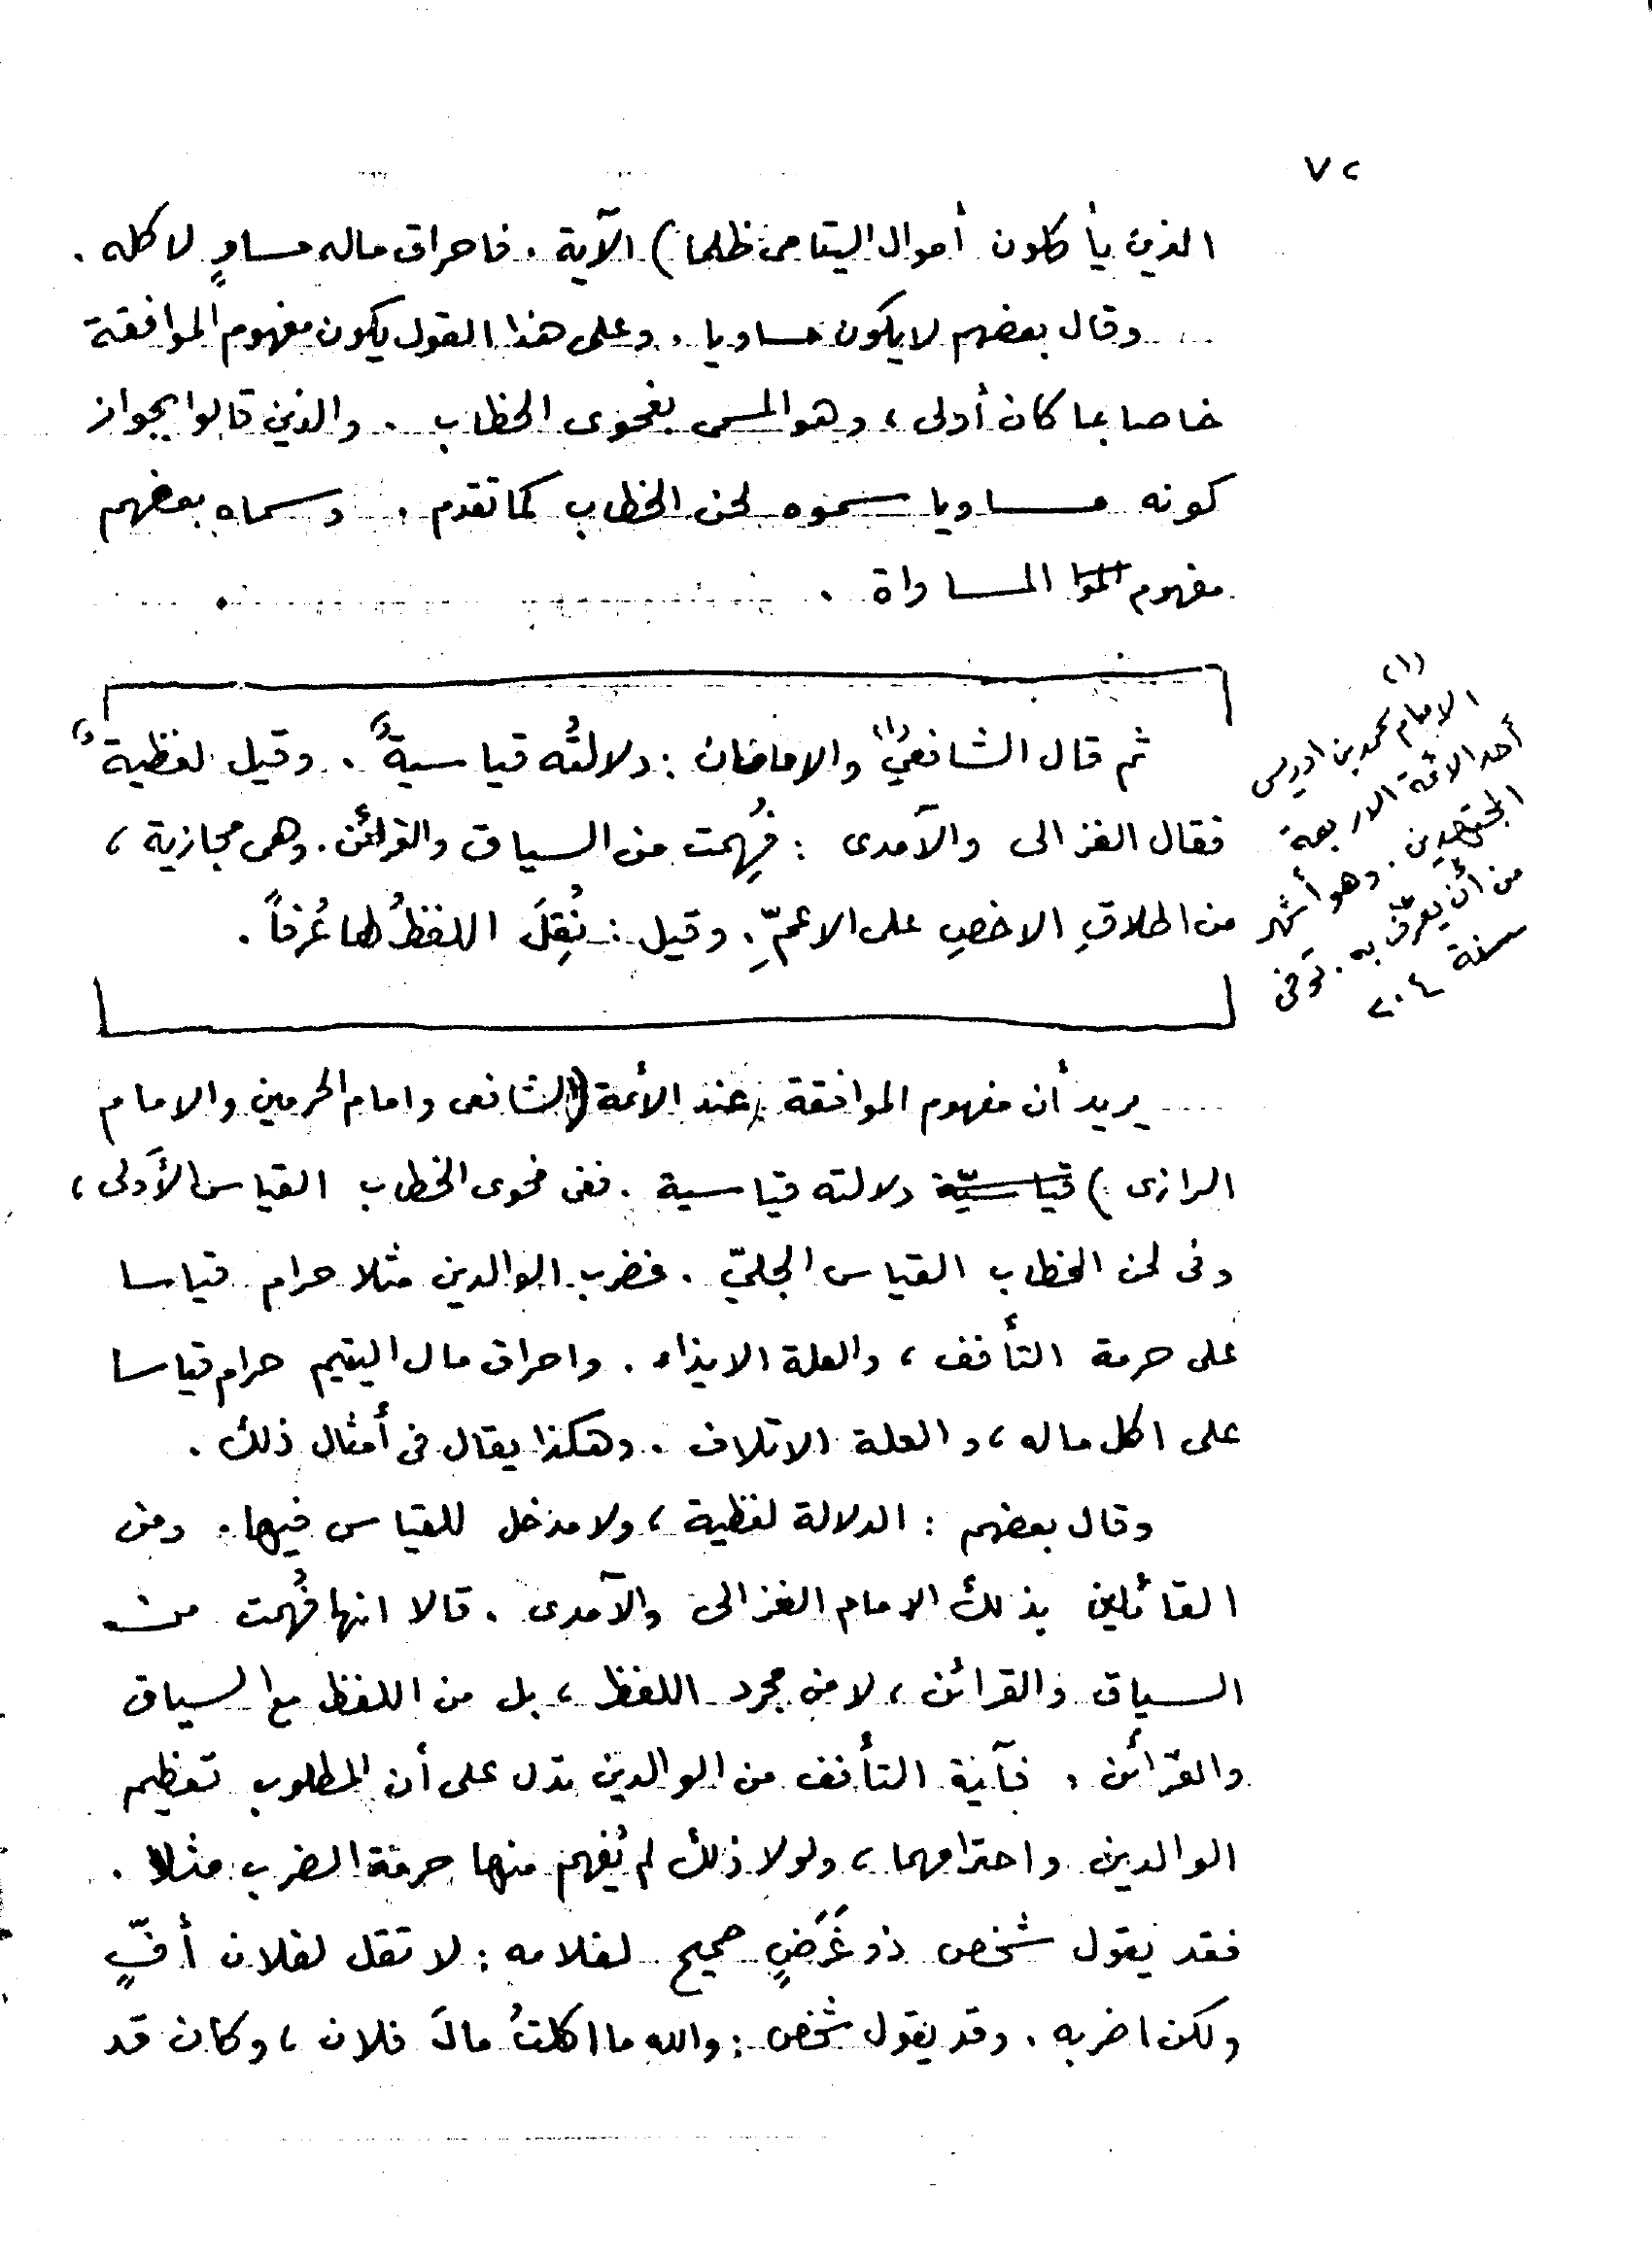 ٧٢
الذين يأكلون أموال اليتامى ظلما) الآية . فاحراق ماله مساوٍ لاكله .
وقال بعضهم لا يكون مساويا . وعلى هذا القول يكون مفهوم الموافقة
خاصا بما كان أولى ، وهو المسمى بفحوى الخطاب . والذين قالوا بجواز
كونه مساويا سموه لحن الخطاب كما تقدم . وسماه بعضهم
مفهوم الموا المساواة .
ثم قال الشافعيُّ (١) والإمامان : دلالتُه قياسيةٌ . وقيل لفظيةٌ ،
فقال الغزالى والآمدى : فُهِمت من السياق والقرائن . وهى مجازية ،
من اطلاقِ الاخصِ على الاعمِّ . وقيل : نُقِلَ اللفظُ لها عُرْفاً .
يريد أن مفهوم الموافقة عند الأئمة (الشافعى وامام الحرمين والامام
الرازى ) قياسيّة دلالته قياسية . ففى فحوى الخطاب القياس الأَولى ،
وفى لحن الخطاب القياس الجليّ . فضرب الوالدين مثلا حرام قياسا
على حرمة التأفف ، والعلة الايذاء . واحراق مال اليتيم حرام قياسا
على اكل ماله ، والعلة الاتلاف . وهكذا يقال فى أمثال ذلك .
وقال بعضهم : الدلالة لفظية ، ولا مدخل للقياس فيها . ومن
القائلين بذلك الامام الغزالى والآمدى . قالا انها فُهمت من
السياق والقرائن ، لا من مجرد اللفظ ، بل من اللفظ مع السياق
والقرائن . فآية التأفف من الوالدين تدل على أن المطلوب تعظيم
الوالدين واحترامهما ، ولولا ذلك لم يُفهم منها حرمة الضرب مثلا .
فقد يقول شخص ذو غَرَضٍ صحيح لغلامه : لا تقل لفلان أفٍّ
ولكن اضربه . وقد يقول شخص : والله ما اكلتُ مالَ فلان ، وكان قد
(١)
الامام محمد بن ادريس
أحد الائمة الاربعة
المجتهدين . وهو أشهر
من أن يعرّف به . توفى
سنة ٢٠٤